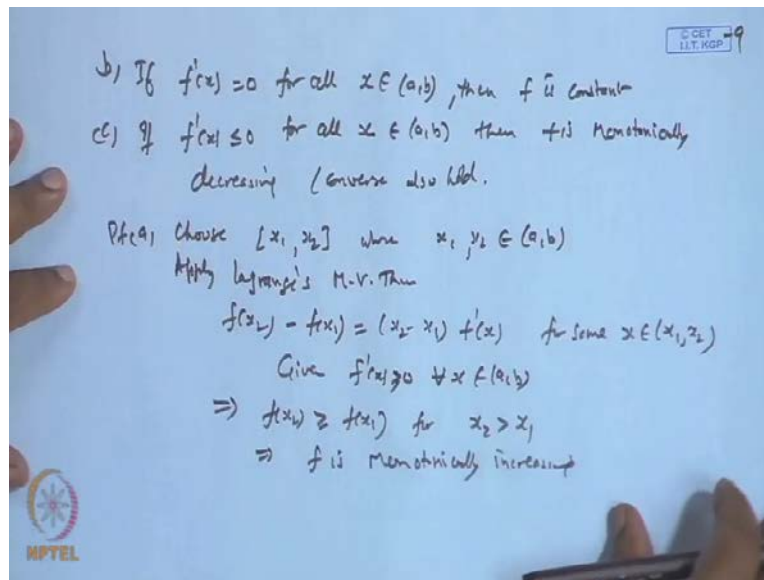 © CET
I.I.T. KGP
-9
b) If f'(x) = 0 for all x ∈ (a,b), then f is constant
(c) If f'(x) ≤ 0 for all x ∈ (a,b) then f is Monotonically
decreasing (Converse also hold.
Pf (a) Choose [x₁, x₂] where x₁, x₂ ∈ (a,b)
Apply Lagrange's M.V. Thm
f(x₂) - f(x₁) = (x₂ - x₁) f'(x) for some x ∈ (x₁, x₂)
Given f'(x) ≥ 0 ∀ x ∈ (a,b)
⇒ f(x₂) ≥ f(x₁) for x₂ > x₁
⇒ f is Monotonically increasing
NPTEL